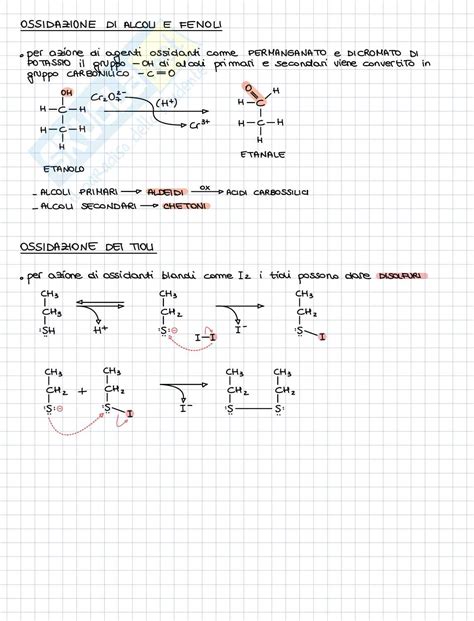 OSSIDAZIONE DI ALCOLI E FENOLI
• per azione di agenti ossidanti come PERMANGANATO e DICROMATO DI
POTASSIO il gruppo -OH di alcoli primari e secondari viene convertito in
gruppo CARBONILICO -C=O
OH
H-C-H
H-C-H
H
ETANOLO
Cr₂O₇²⁻
(H⁺)
Cr³⁺
O H
H-C
H-C-H
H
ETANALE
- ALCOLI PRIMARI → ALDEIDI OX→ ACIDI CARBOSSILICI
- ALCOLI SECONDARI → CHETONI
OSSIDAZIONE DEI TIOLI
• per azione di ossidanti blandi come I₂ i tioli possono dare DISOLFURI
CH₃ CH₃ CH₃
CH₂ CH₂ CH₂
:SH H⁺ :S:⊖ I-I I⁻ :S-I
CH₃ CH₃ CH₃ CH₃
CH₂ + CH₂ CH₂ CH₂
:S:⊖ :S-I I⁻ :S-S: